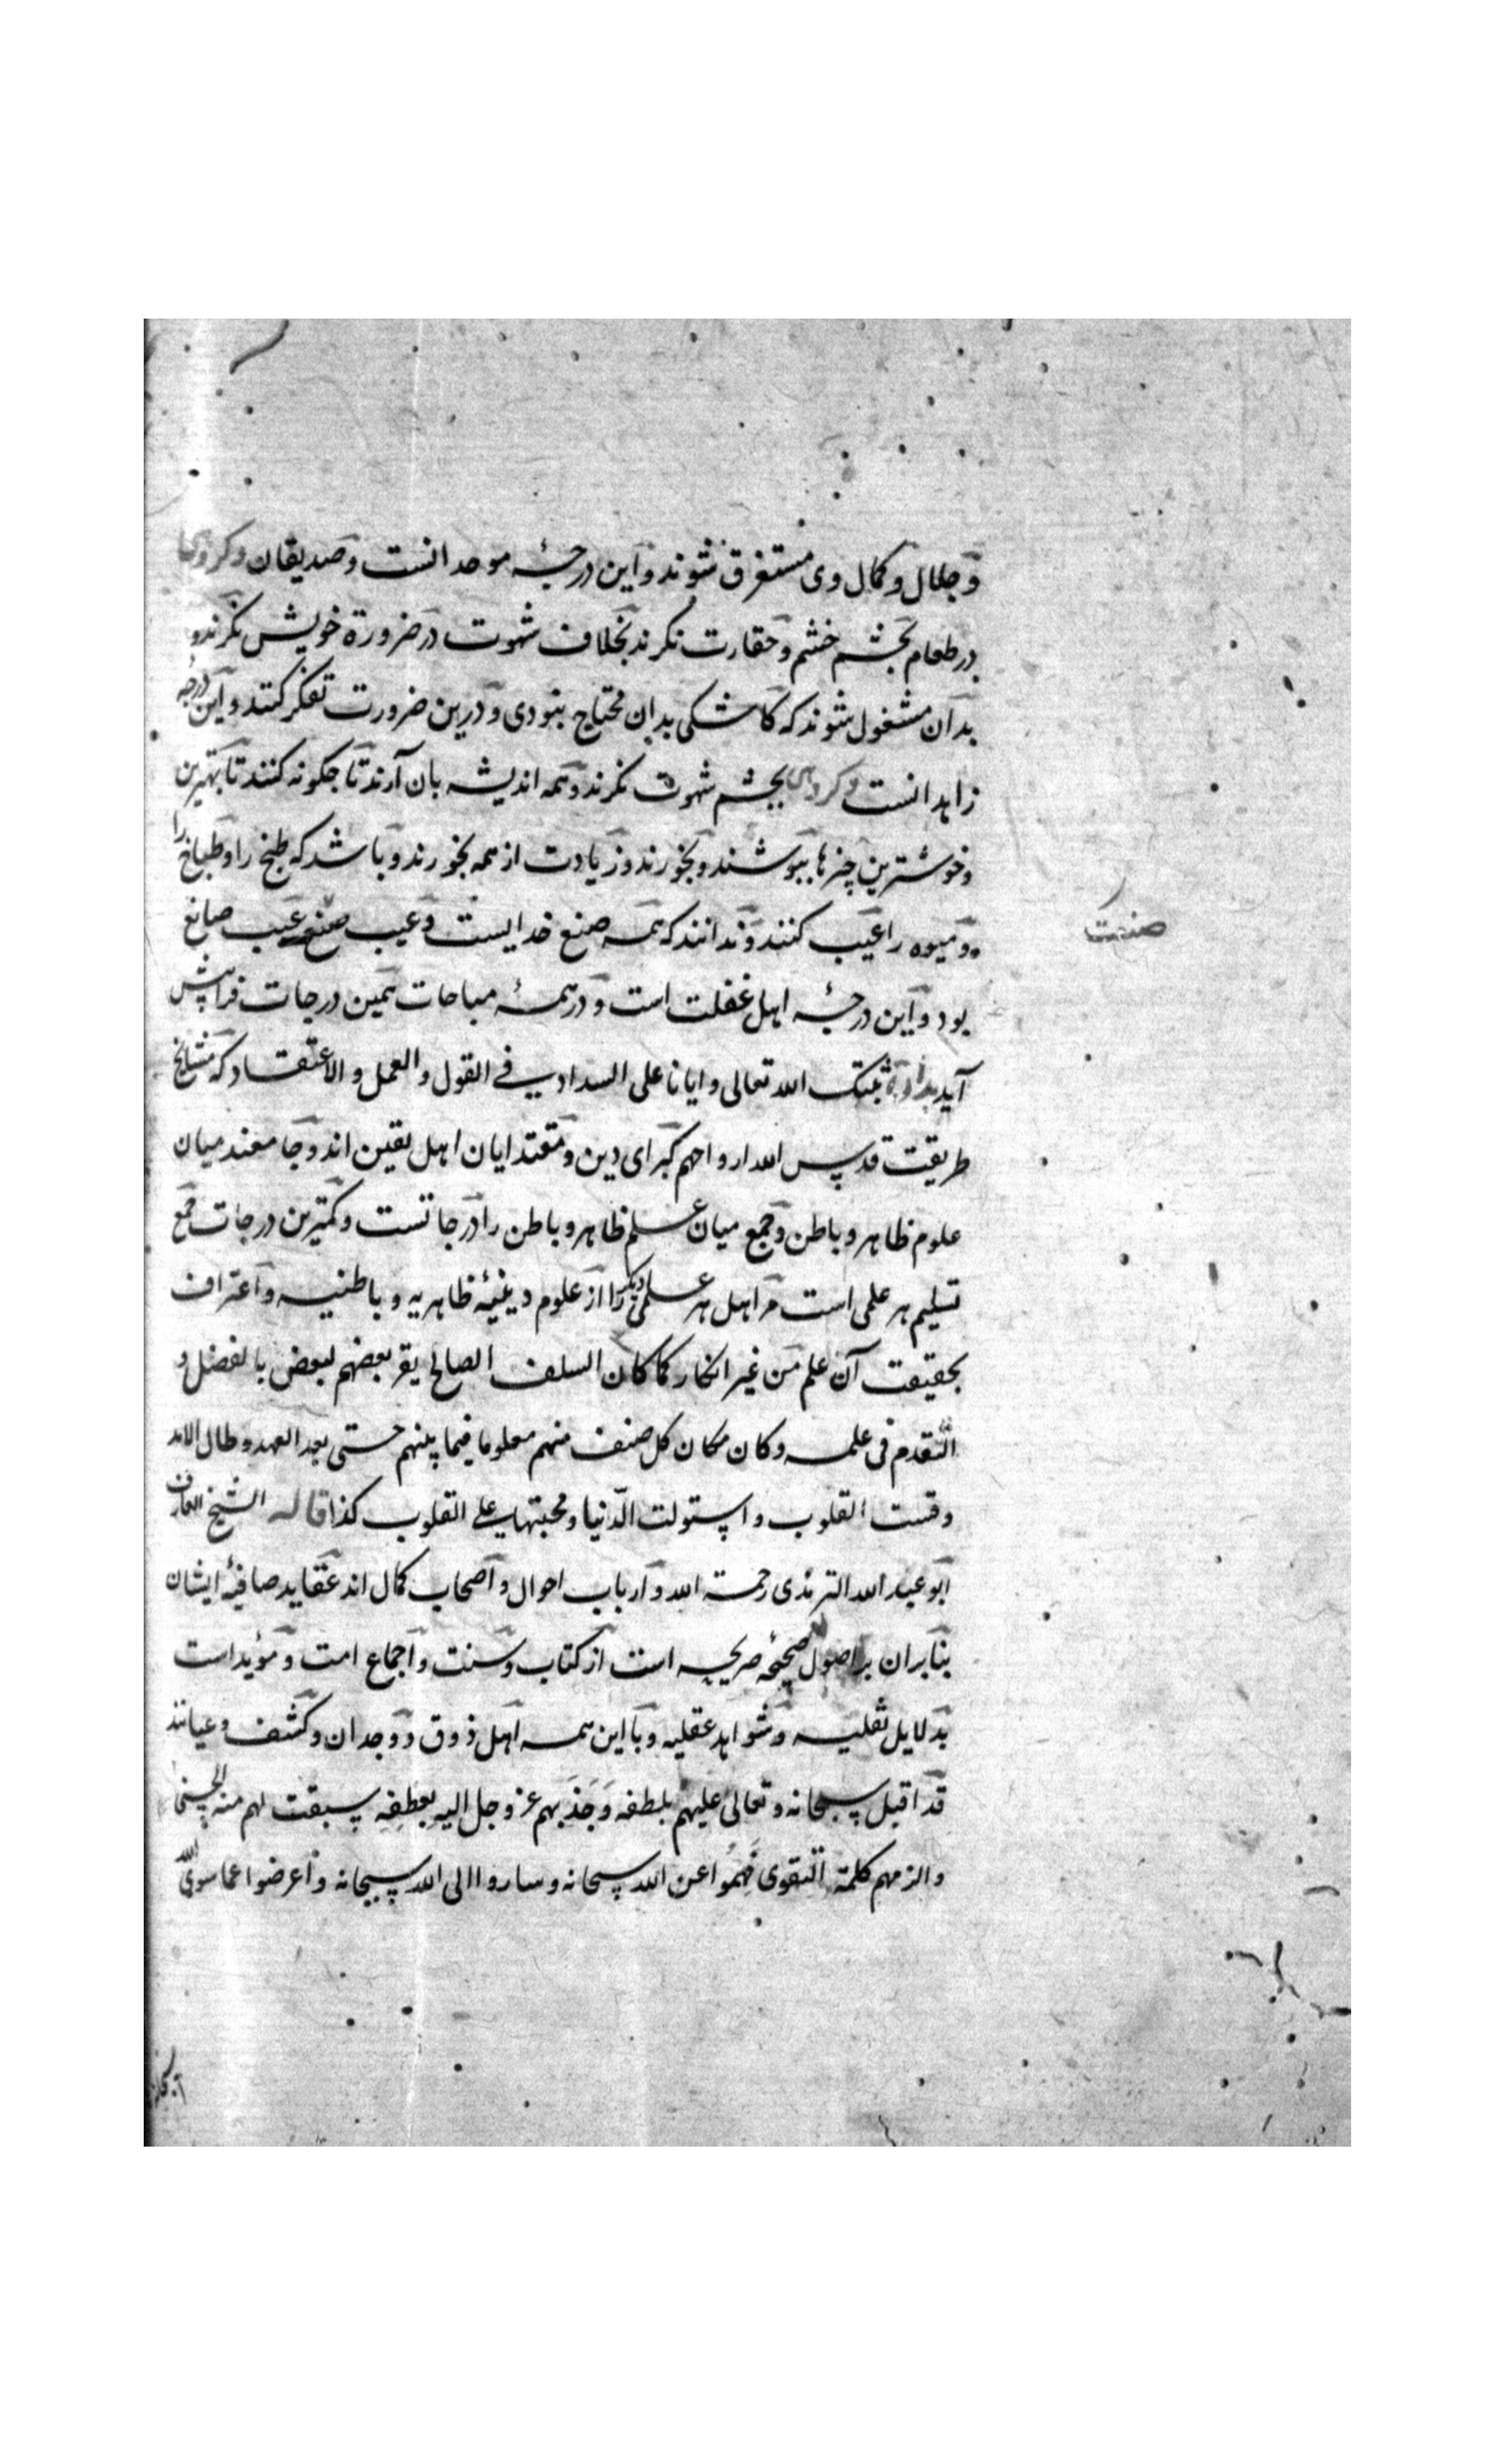 و جلال و کمال وی مستغرق شوند و این درجهٔ موحدانست و صدیقان و کروهی
در طعام بچشم خشم و حقارت نکرند بخلاف شهوت در ضرورة خویش نکرند و
بدان مشغول شوند که کاشکی بدان محتاج نبودی و درین ضرورت تفکر کنند و این درجه
زاهدانست و کروهی بچشم شهوت نکرند و همه اندیشه بان آرند تا چکونه کنند تا بهترین
و خوشترین چیزها بپوشند و بخورند و زیادت از همه بخورند و باشد که طبخ را و طباخ را
و میوه را عیب کنند و ندانند که همه صنع خدایست و عیب صنع عیب صانع
صنعت
بود و این درجهٔ اهل غفلت است و در همهٔ مباحات همین درجات فرا پیش
آید بدان ثبتک الله تعالی و ایانا علی السداد فی القول و العمل و الاعتقاد که مشایخ
طریقت قدس الله ارواحهم کبرای دین و مقتدایان اهل یقین اند و جامعند میان
علوم ظاهر و باطن و جمع میان علم ظاهر و باطن را درجاتست و کمترین درجات جمع
تسلیم هر علمی است مر اهل هر علمی دیکر را از علوم دینیهٔ ظاهریه و باطنیه و اعتراف
بحقیقت آن علم من غیر انکار کما کان السلف الصالح یقر بعضهم لبعض بالفضل و
التقدم فی علمه و کان مکان کل صنف منهم معلوما فیما بینهم حتی بعد العهد و طال الامد
و قست القلوب و استولت الدّنیا و محبتها علی القلوب کذا قاله الشیخ العارف
ابو عبد الله الترمذی رحمة الله و ارباب احوال و اصحاب کمال اند عقاید صافیهٔ ایشان
بنا بران بر اصول صحیحهٔ صریحه است از کتاب و سنت و اجماع امت و مؤید است
بدلایل نقلیه و شواهد عقلیه و با این همه اهل ذوق و وجدان و کشف و عیانند
قد اقبل سبحانه و تعالی علیهم بلطفه وَ جَذَبهم عز و جل الیه بعطفه سبقت لهم منه الحسنی
و الزمهم کلمة التقوی فهموا عن الله سبحانه و ساروا الی الله سبحانه و اعرضوا عما سوی الله